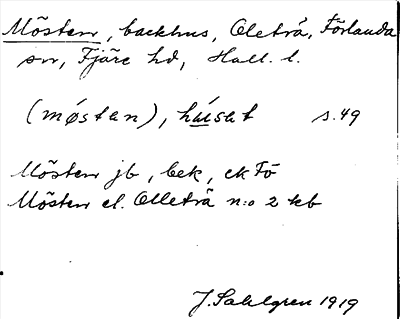 Mösten, backhus, Oleträ, Förlanda
sn, Fjäre hd, Hall. l.
(møstan), húset s. 49
Mösten jb, bek, ek Fö
Mösten el. Olleträ n:o 2 kb
J. Sahlgren 1919